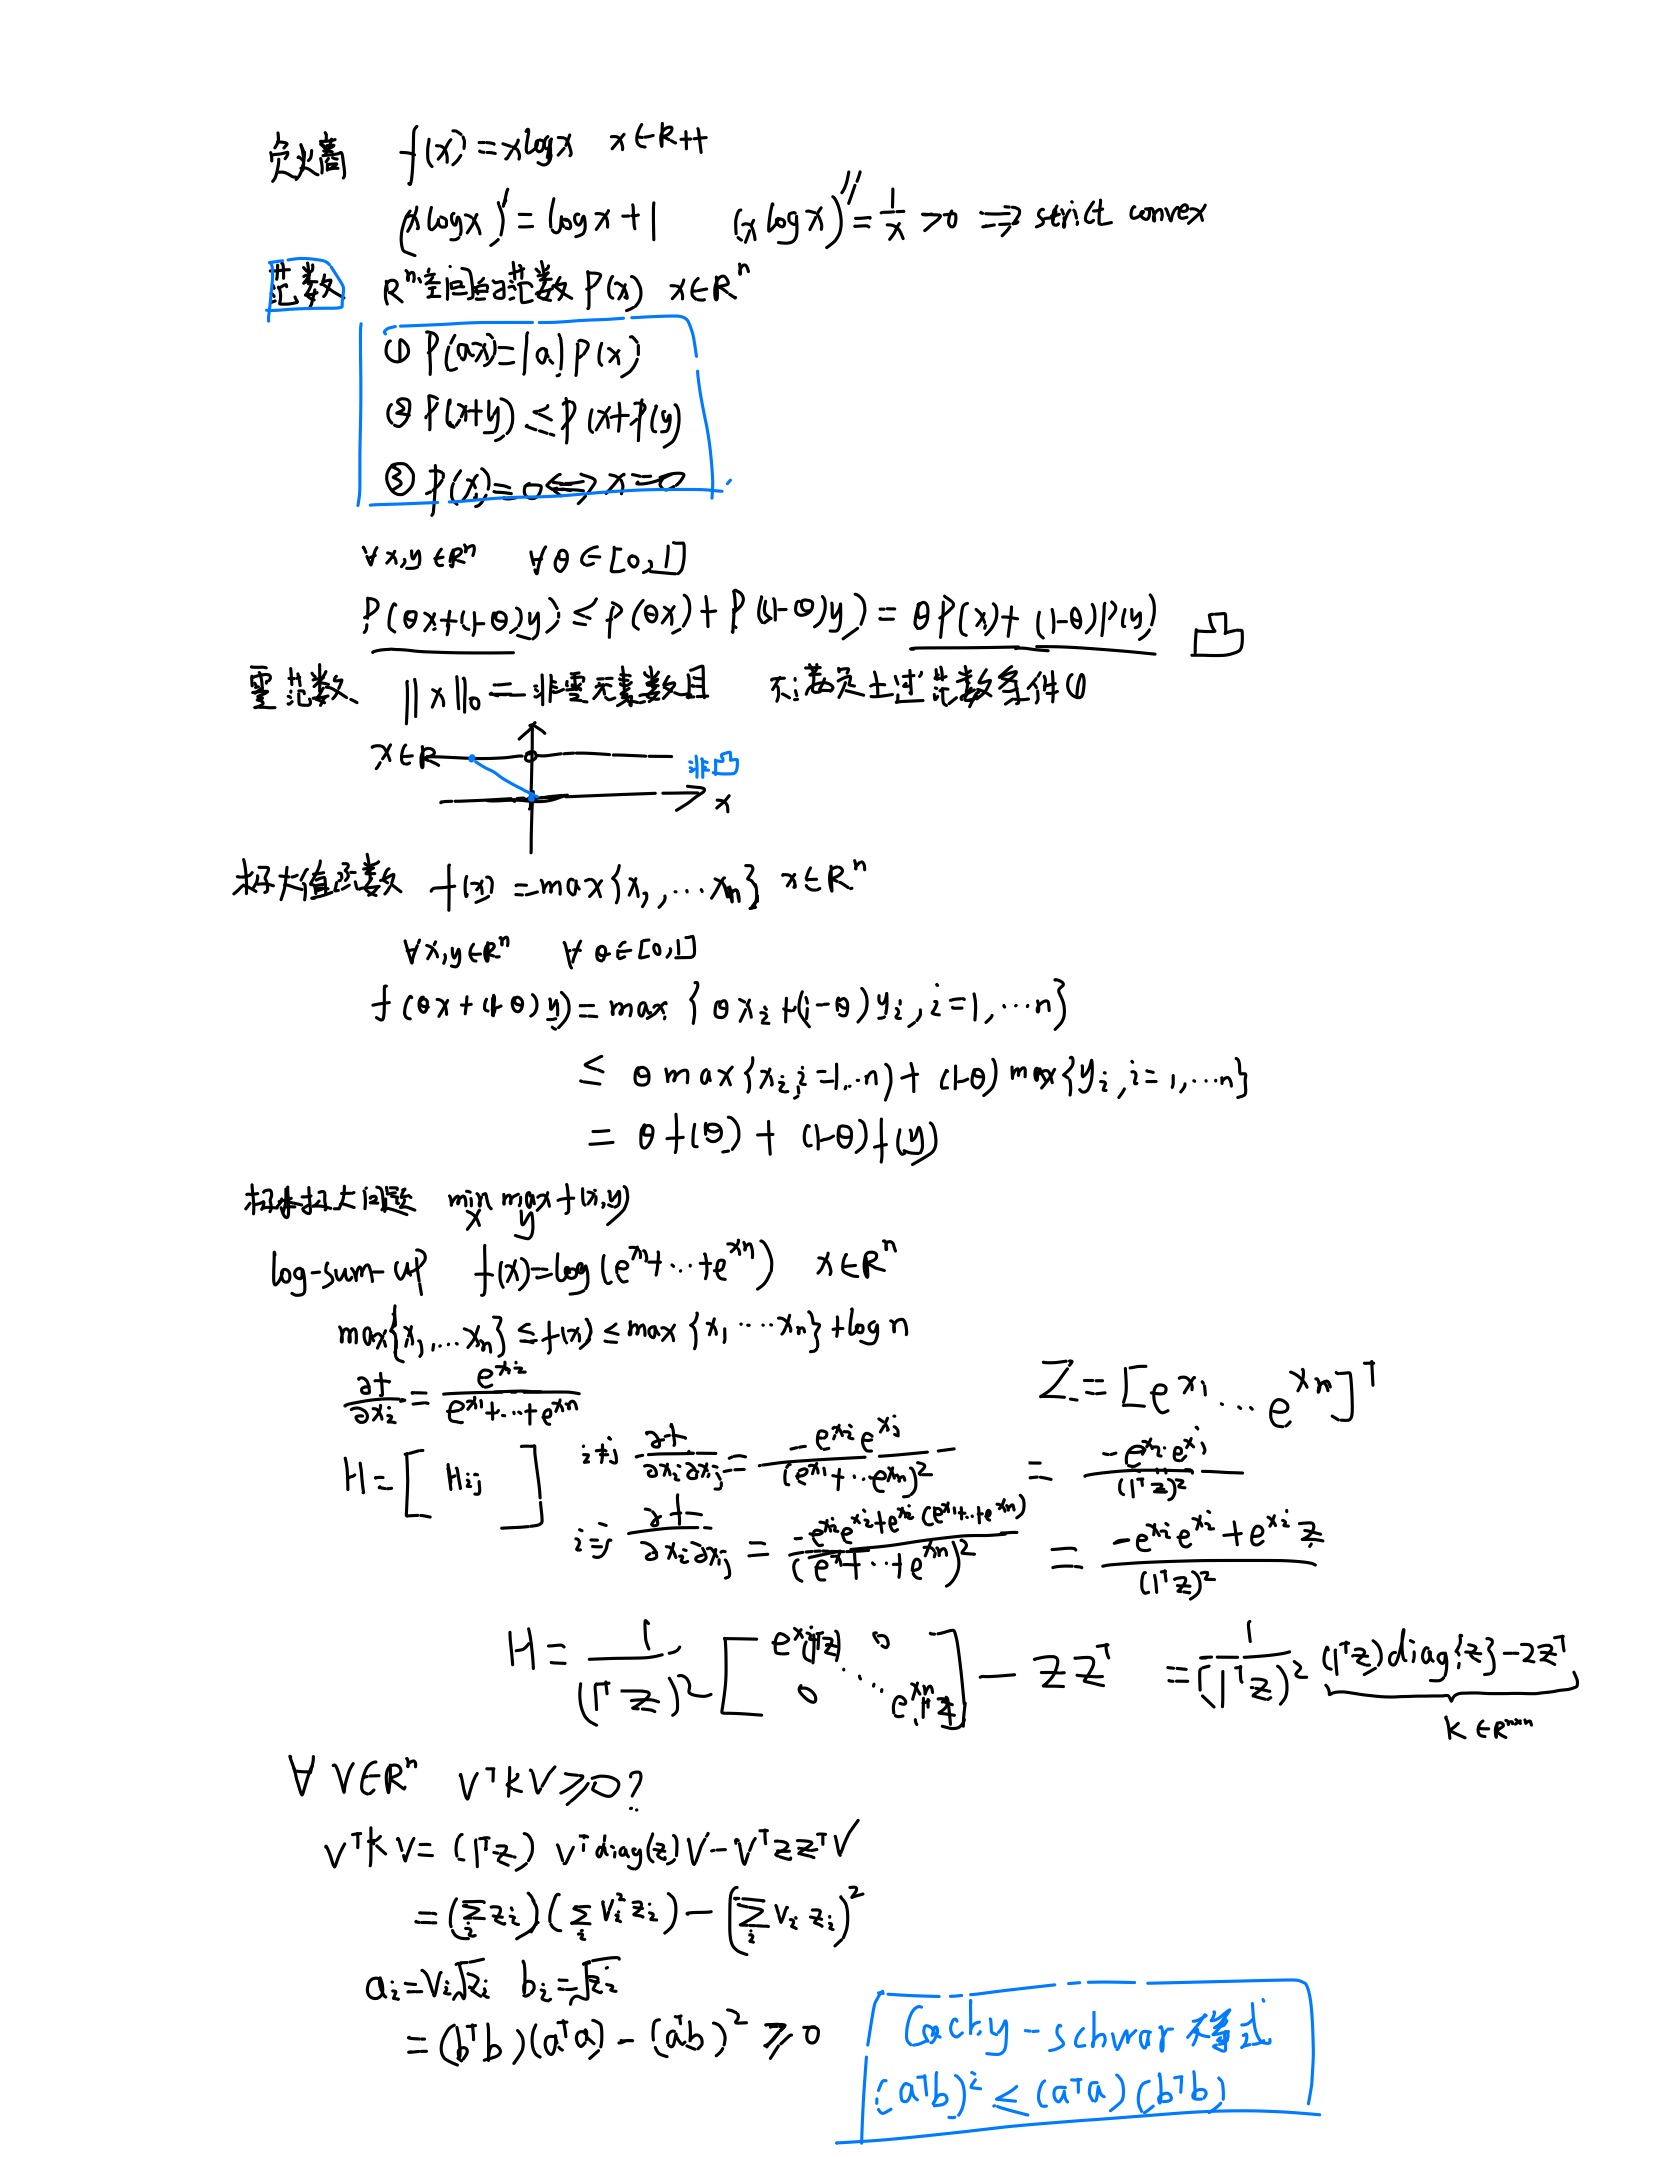 负熵 f(x)=xlogx x∈R++
(xlogx)'=logx+1 (xlogx)''=1/x>0 ⇒ strict convex
范数 Rⁿ空间的范数 P(x) x∈Rⁿ
① P(ax)=|a|P(x)
② P(x+y)≤P(x+P(y)
③ P(x)=0⇔x=0
∀x,y∈Rⁿ ∀θ∈[0,1]
P(θx+(1-θ)y)≤P(θx)+P(1-θ)y)=θP(x)+(1-θ)P(y) 凸
零范数 ||x||₀=非零元素数目 不满足 范数条件①
x∈R 非凸
x
极大值函数 f(x)=max{x₁,...xₙ} x∈Rⁿ
∀x,y∈Rⁿ ∀θ∈[0,1]
f(θx+(1-θ)y)=max{θxᵢ+(1-θ)yᵢ,i=1,...n}
≤ θmax{xᵢ,i=1...n)+(1-θ)max{yᵢ,i=1,...n}
= θf(θ)+(1-θ)f(y)
极小极大问题 min_x max_y f(x,y)
log-sum-up f(x)=log(e^x₁+...+e^xₙ) x∈Rⁿ
max{x₁,...xₙ}≤f(x)≤max{x₁...xₙ}+logn
∂f/∂xᵢ=e^xᵢ/(e^x₁+...+e^xₙ) Z=[e^x₁...e^xₙ]ᵀ
H=[Hij] i≠j ∂f/∂xᵢ∂xⱼ=-e^xᵢe^xⱼ/(e^x₁+...e^xₙ)² = -e^xᵢ·e^xⱼ/(1ᵀz)²
i=j ∂f/∂xᵢ∂xⱼ = (-e^xᵢe^xᵢ+e^xᵢ(e^x₁+...+e^xₙ))/(e^x+...+e^xₙ)² = (-e^xᵢe^xᵢ+e^xᵢz)/(1ᵀz)²
H=1/(1ᵀz)² [e^xᵢ(1ᵀz) 0 ⋱ 0 e^xₙ1ᵀz] - zzᵀ = 1/(1ᵀz)² (1ᵀz)diag{z}-zzᵀ
K∈Rⁿˣⁿ
∀V∈Rⁿ VᵀKV≥0?
VᵀKV=(1ᵀz) Vᵀdiag(z)V-VᵀzzᵀV
=(∑ᵢzᵢ)(∑ᵢVᵢ²zᵢ)-(∑ᵢVᵢzᵢ)²
aᵢ=Vᵢ√zᵢ bᵢ=√zᵢ
=(bᵀb)(aᵀa)-(aᵀb)²≥0
Cachy-schwar不等式
(aᵀb)²≤(aᵀa)(bᵀb)